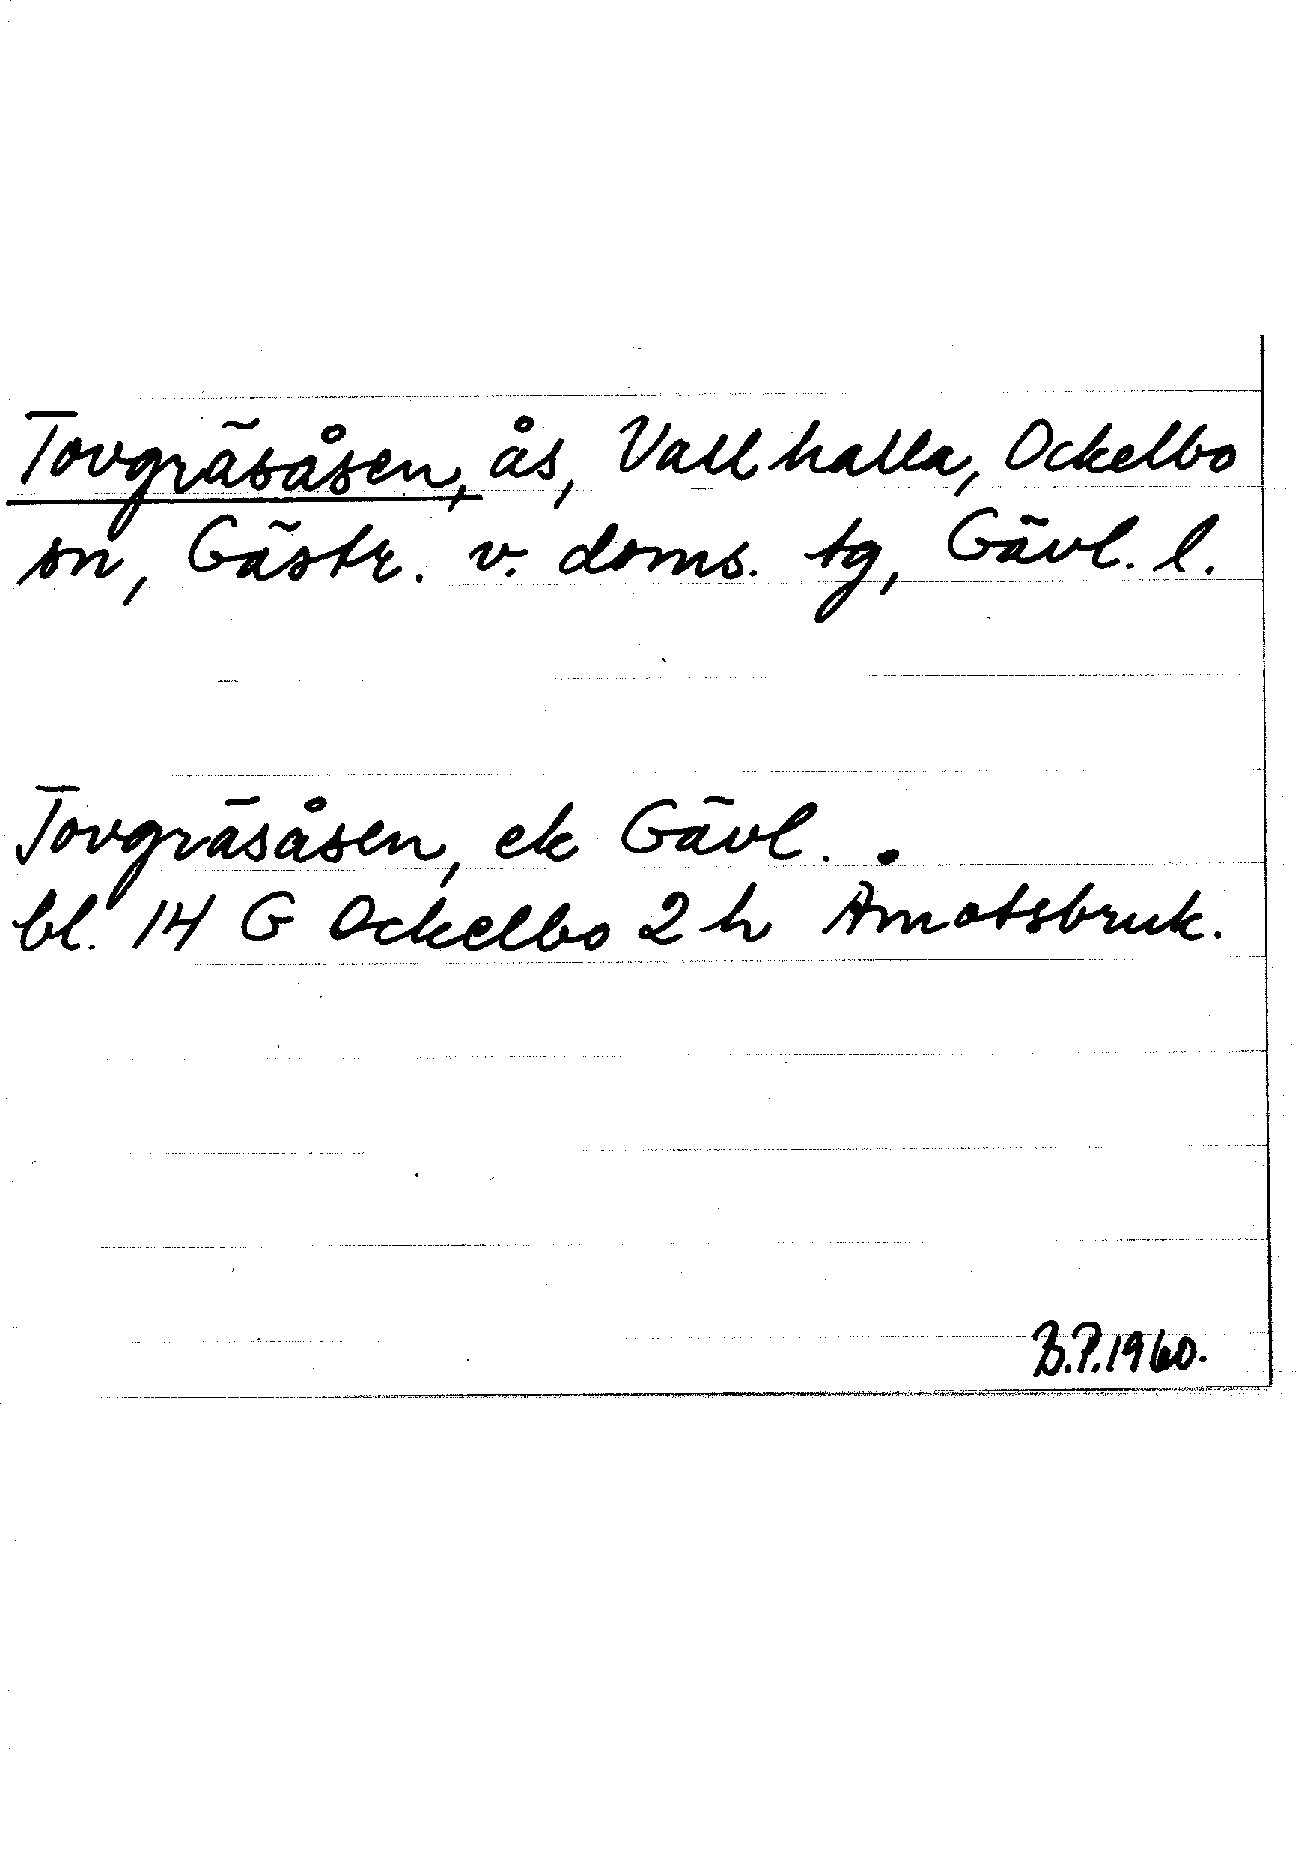 Tovgräsåsen, ås, Vallhalla, Ockelbo
sn, Gästr. v. doms. tg, Gävl. l.
Tovgräsåsen, ek Gävl.
bl. 14 G Ockelbo 2 h Åmotsbruk.
B.P.1960.